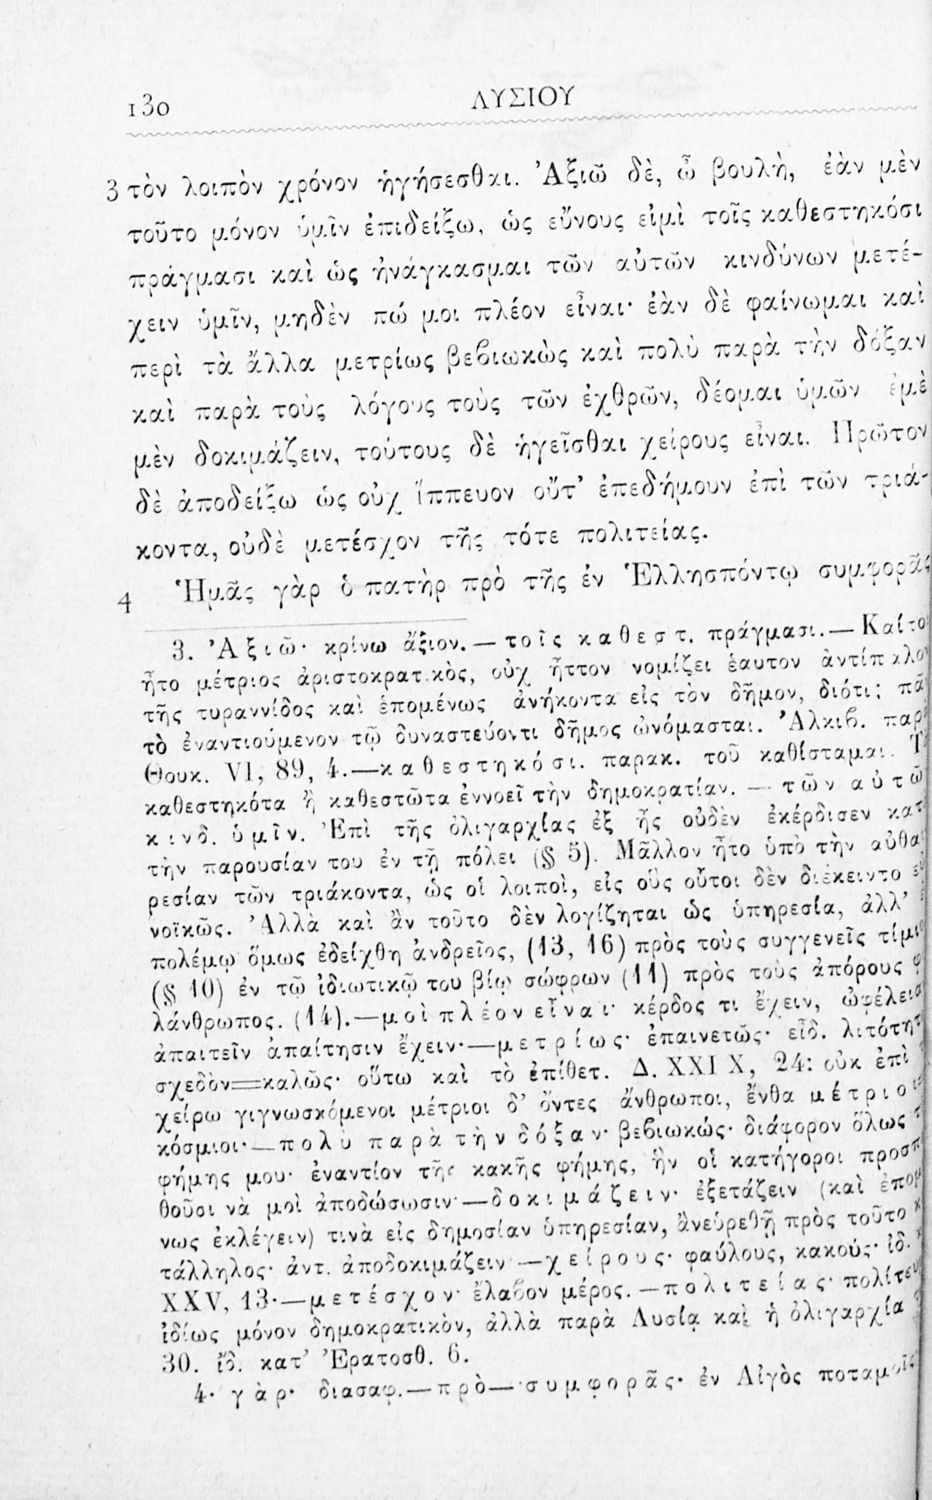 130 ΛΥΣΙΟΥ
3 τὸν λοιπὸν χρόνον ἡγήσεσθαι. Ἀξιῶ δὲ, ὦ βουλὴ, ἐὰν μὲν
τοῦτο μόνον ὑμῖν ἐπιδείξω, ὡς εὔνους εἰμὶ τοῖς καθεστηκόσι
πράγμασι καὶ ὡς ἠνάγκασμαι τῶν αὐτῶν κινδύνων μετέ-
χειν ὑμῖν, μηδὲν πώ μοι πλέον εἶναι· ἐὰν δὲ φαίνωμαι καὶ
περὶ τὰ ἄλλα μετρίως βεβιωκὼς καὶ πολὺ παρὰ τὴν δόξαν
καὶ παρὰ τοὺς λόγους τοὺς τῶν ἐχθρῶν, δέομαι ὑμῶν ἐμὲ
μὲν δοκιμάζειν, τούτους δὲ ἡγεῖσθαι χείρους εἶναι. Πρῶτον
δὲ ἀποδείξω ὡς οὐχ ἵππευον οὔτ' ἐπεδήμουν ἐπὶ τῶν τριά-
κοντα, οὐδὲ μετέσχον τῆς τότε πολιτείας.
4 Ἡμᾶς γὰρ ὁ πατὴρ πρὸ τῆς ἐν Ἑλλησπόντῳ συμφορᾶς
3. Ἀξιῶ· κρίνω ἄξιον. — τοῖς καθεστ. πράγμασι. — Καίτοι
ἦτο μέτριος ἀριστοκρατικὸς, οὐχ ἧττον νομίζει ἑαυτον ἀντίπαλον
τῆς τυραννίδος καὶ ἑπομένως ἀνήκοντα εἰς τὸν δῆμον, διότι; πᾶν
τὸ ἐναντιούμενον τῷ δυναστεύοντι δῆμος ὠνόμασται. Ἀλκιβ. παρὰ
Θουκ. VI, 89, 4.—καθεστηκόσι. παρακ. τοῦ καθίσταμαι.
καθεστηκότα ἢ καθεστῶτα ἐννοεῖ τὴν δημοκρατίαν. — τῶν αὐτῶν
κινδ. ὑμῖν. Ἐπὶ τῆς ὀλιγαρχίας ἐξ ἧς οὐδὲν ἐκέρδισεν κατὰ
τὴν παρουσίαν του ἐν τῇ πόλει (§ 5). Μᾶλλον ἦτο ὑπὸ τὴν αὐθαι
ρεσίαν τῶν τριάκοντα, ὡς οἱ λοιποὶ, εἰς οὓς οὗτοι δὲν διέκειντο εὐ
νοϊκῶς. Ἀλλὰ καὶ ἂν τοῦτο δὲν λογίζηται ὡς ὑπηρεσία, ἀλλ'
πολέμῳ ὅμως ἐδείχθη ἀνδρεῖος, (13, 16) πρὸς τοὺς συγγενεῖς τίμιος
(§ 10) ἐν τῷ ἰδιωτικῷ του βίῳ σώφρων (11) πρὸς τοὺς ἀπόρους φι
λάνθρωπος. (14).—μοὶ πλέον εἶναι· κέρδος τι ἔχειν, ὠφέλειαν
ἀπαιτεῖν ἀπαίτησιν ἔχειν·—μετρίως· ἐπαινετῶς· εἶδ. λιτότητ
σχεδὸν=καλῶς· οὕτω καὶ τὸ ἐπίθετ. Δ. XXIX, 24: οὐκ ἐπὶ
χείρω γιγνωσκόμενοι μέτριοι δ' ὄντες ἄνθρωποι, ἔνθα μέτριοι
κόσμιοι·—πολὺ παρὰ τὴν δόξαν· βεβιωκώς· διάφορον ὅλως τ
φήμης μου· ἐναντίον τῆς κακῆς φήμης, ἣν οἱ κατήγοροι προσπ
θοῦσι νὰ μοὶ ἀποδώσωσιν·—δοκιμάζειν· ἐξετάζειν (καὶ ἐπομ
νως ἐκλέγειν) τινὰ εἰς δημοσίαν ὑπηρεσίαν, ἂν εὑρεθῇ πρὸς τοῦτο κ
τάλληλος· ἀντ. ἀποδοκιμάζειν —χείρους· φαύλους, κακούς· ἰδ.
XXV, 13·—μετέσχον· ἔλαβον μέρος.—πολιτείας· πολίτευ
ἰδίως μόνον δημοκρατικὸν, ἀλλὰ παρὰ Λυσίᾳ καὶ ἡ ὀλιγαρχία
30. ἴδ. κατ' Ἐρατοσθ. 6.
4· γὰρ· διασαφ.—πρὸ—συμφορᾶς· ἐν Αἰγὸς ποταμοῖς